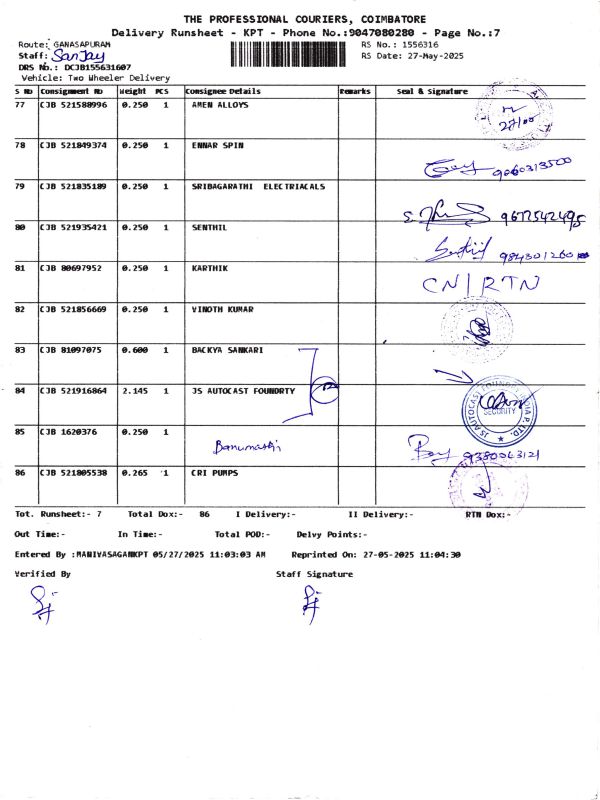 THE PROFESSIONAL COURIERS, COIMBATORE
Delivery Runsheet - KPT - Phone No.:9047080280 - Page No.:7
Route: GANASAPURAM RS No.: 1556316
Staff: Sanjay RS Date: 27-May-2025
DRS No.: DCJB155631607
Vehicle: Two Wheeler Delivery
S NO Consignment NO Weight PCS Consignee Details Remarks Seal & Signature
77 CJB 521588996 0.250 1 AMEN ALLOYS
78 CJB 521849374 0.250 1 ENNAR SPIN
9060313500
79 CJB 521835189 0.250 1 SRIBAGARATHI ELECTRIACALS
9677542495
80 CJB 521935421 0.250 1 SENTHIL
Senthil
81 CJB 80697952 0.250 1 KARTHIK
CN/RTN
82 CJB 521856669 0.250 1 VINOTH KUMAR
83 CJB 81097075 0.600 1 BACKYA SANKARI
84 CJB 521916864 2.145 1 JS AUTOCAST FOUNDRTY
JS AUTOCAST FOUNDRY INDIA P. LTD.
SECURITY
85 CJB 1620376 0.250 1
Banumathi 9380063121
86 CJB 521805538 0.265 1 CRI PUMPS
Tot. Runsheet:- 7 Total Dox:- 86 I Delivery:- II Delivery:- RTN Dox:-
Out Time:- In Time:- Total POD:- Delvy Points:-
Entered By :MANIVASAGANKPT 05/27/2025 11:03:03 AM Reprinted On: 27-05-2025 11:04:30
Verified By Staff Signature